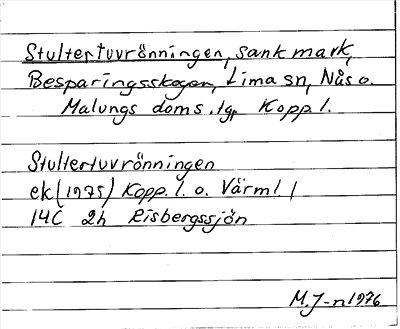 Stultertuvrönningen, sank mark,
Besparingsskogen, Lima sn, Nås o.
Malungs doms.lg, Kopp l.
Stultertuvrönningen
ek (1975) Kopp. l. o. Värml. l
14C 2h Risbergssjön
M.J-n 1976